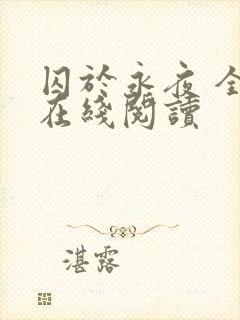 囚於永夜 全
在綫閱讀
湛露